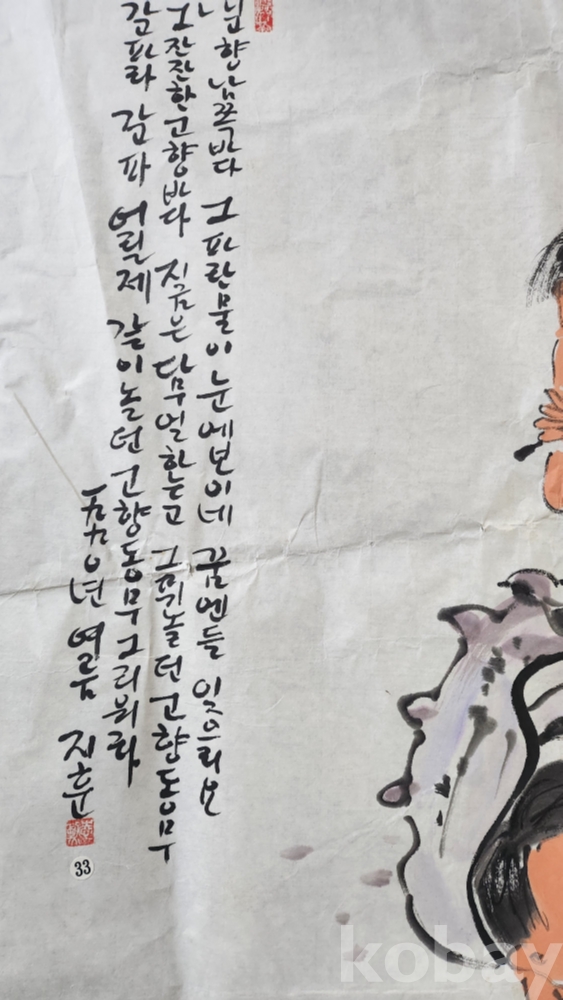 향남쪽바다 그파란물이 눈에보이네 꿈엔들 잊으리오
그잔잔한고향바다 지금은 다무얼하는고 그뛰놀던고향동무
가고파라 가고파 어릴제 같이놀던고향동무그리워라
一九九〇년 여름 지훈
33
kobay